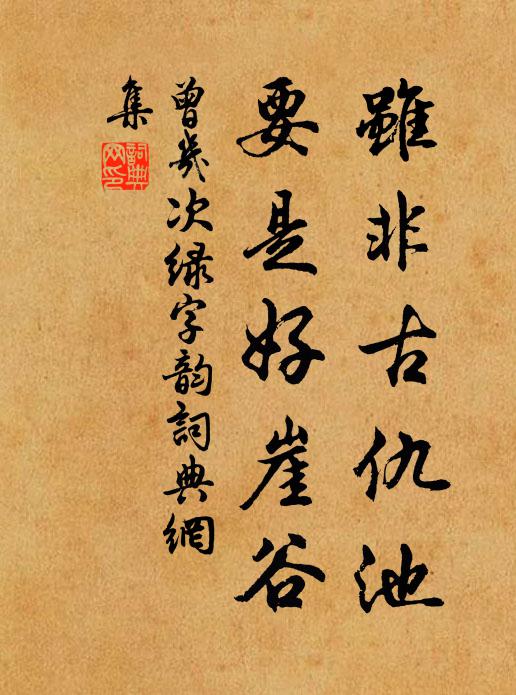 雖非古仇池
要是好崖谷
曾幾次绿字韵詞典網
集
詞典網印